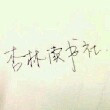 杏林读书社